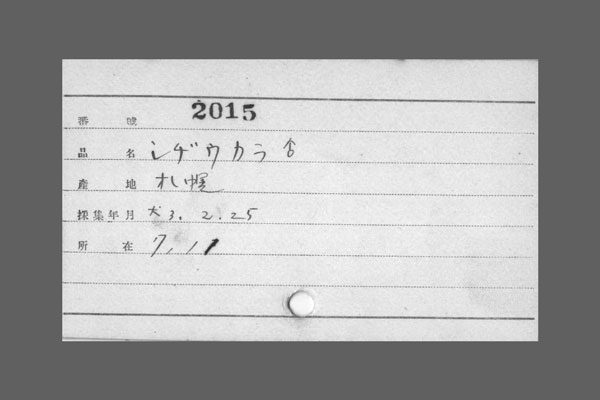 番號 2015
品名 シヂウカラ ♂
産地 札幌
採集年月 大3.2.25
所在 7,11